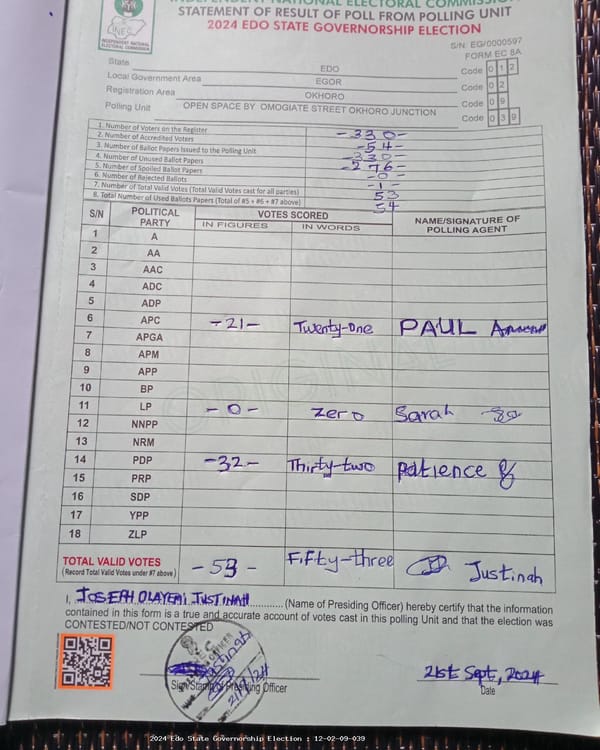 INDEPENDENT NATIONAL ELECTORAL COMMISSION
STATEMENT OF RESULT OF POLL FROM POLLING UNIT
2024 EDO STATE GOVERNORSHIP ELECTION
INEC
INDEPENDENT NATIONAL ELECTORAL COMMISSION
S/N: EG/0000597
FORM EC 8A
State EDO Code 0 1 2
Local Government Area EGOR Code 0 2
Registration Area OKHORO Code 0 9
Polling Unit OPEN SPACE BY OMOGIATE STREET OKHORO JUNCTION Code 0 3 9
1. Number of Voters on the Register -330-
2. Number of Accredited Voters -54-
3. Number of Ballot Papers Issued to the Polling Unit -330-
4. Number of Unused Ballot Papers -276-
5. Number of Spoiled Ballot Papers -0-
6. Number of Rejected Ballots -1-
7. Number of Total Valid Votes (Total Valid Votes cast for all parties) 53
8. Total Number of Used Ballots Papers (Total of #5 + #6 + #7 above) 54
S/N POLITICAL PARTY VOTES SCORED NAME/SIGNATURE OF POLLING AGENT
IN FIGURES IN WORDS
1 A
2 AA
3 AAC
4 ADC
5 ADP
6 APC -21- Twenty-One PAUL
7 APGA
8 APM
9 APP
10 BP
11 LP -0- Zero Sarah
12 NNPP
13 NRM
14 PDP -32- Thirty-two Patience
15 PRP
16 SDP
17 YPP
18 ZLP
TOTAL VALID VOTES -53- Fifty-three Justinah
(Record Total Valid Votes under #7 above)
I, JOSEPH OLAYEMI JUSTINAH (Name of Presiding Officer) hereby certify that the information
contained in this form is a true and accurate account of votes cast in this polling Unit and that the election was
CONTESTED/NOT CONTESTED
Sign/Stamp of Presiding Officer
21st Sept, 2024
Date
2024 Edo State Governorship Election : 12-02-09-039